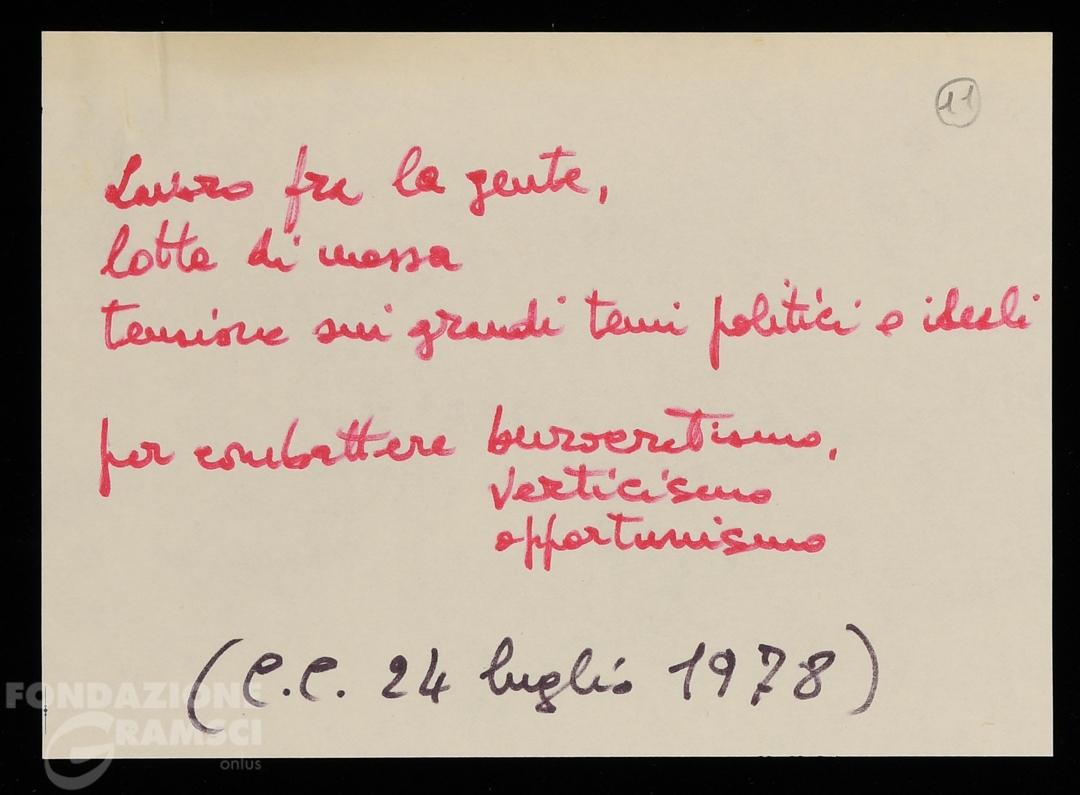 11
Lavoro fra la gente,
lotte di massa
tensione sui grandi temi politici e ideali
per combattere burocratismo,
verticismo
opportunismo
(C.C. 24 luglio 1978)
FONDAZIONE
GRAMSCI
onlus